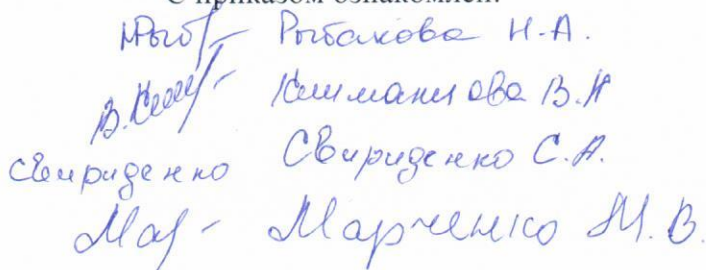 С приказом ознакомлен:
Рыбакова Н.А.
В.Клим Климанова В.Н
Свириденко Свириденко С.А.
Мар- Марченко М.В.